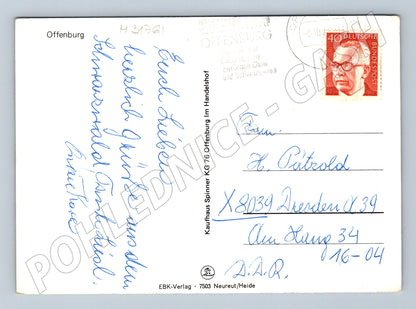 Offenburg
H 31761
OFFENBURG
40 DEUTSCHE BUNDESPOST
Euch Lieben
herzlich Grüße aus dem
Schwarzwald,
Kaufhaus Spinner KG 76 Offenburg Im Handelshof
Fam.
H. Pätzold
X8039 Dresden A 39
Am Hang 34
16-04
D.D.R.
EBK-Verlag · 7503 Neureut/Heide
POHLEDNICE - GARTH